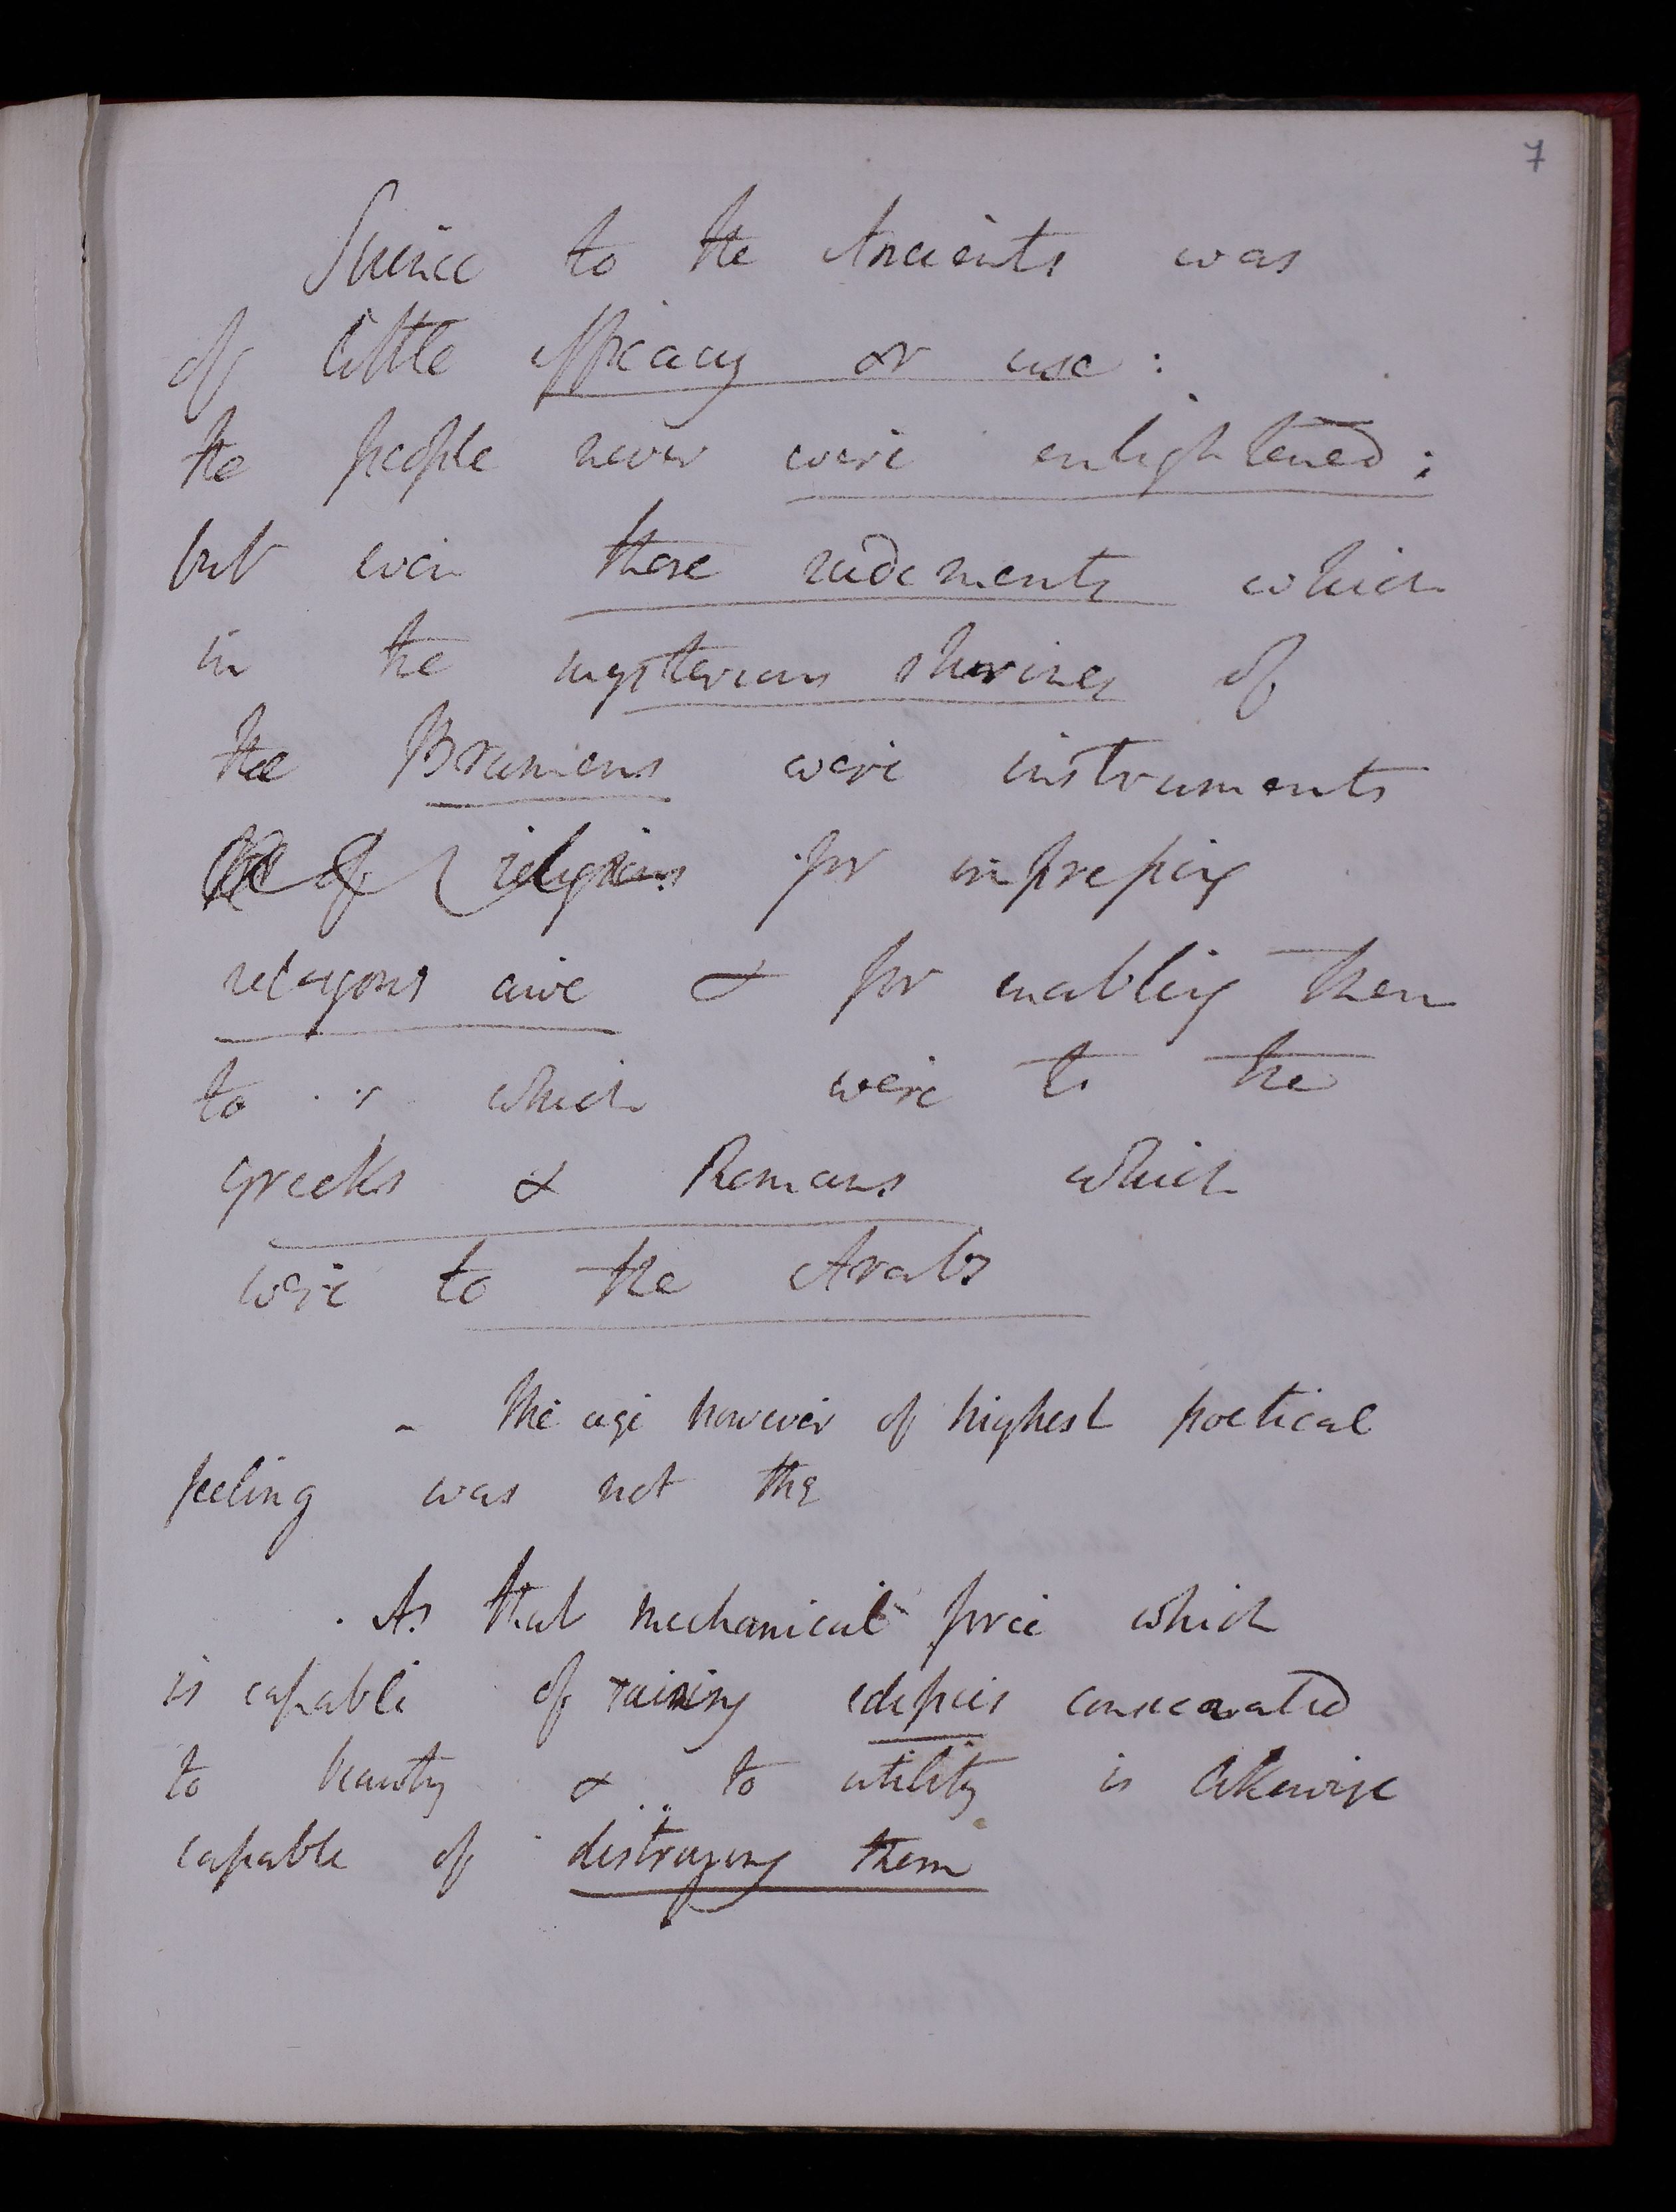 7
Science to the Ancients was
of little efficacy or use:
the people never were enlightened;
but even those rudements which
in the mysterious shrines of
the Bramens were instruments
of religious for impressing
religous awe & for enabling them
to which were to the
Greeks & Romans which
were to the Arabs
- The age however of highest poetical
feeling was not the
As that mechanical force which
is capable of raising edifices consecrated
to beauty & to utility is likewise
capable of distroying them